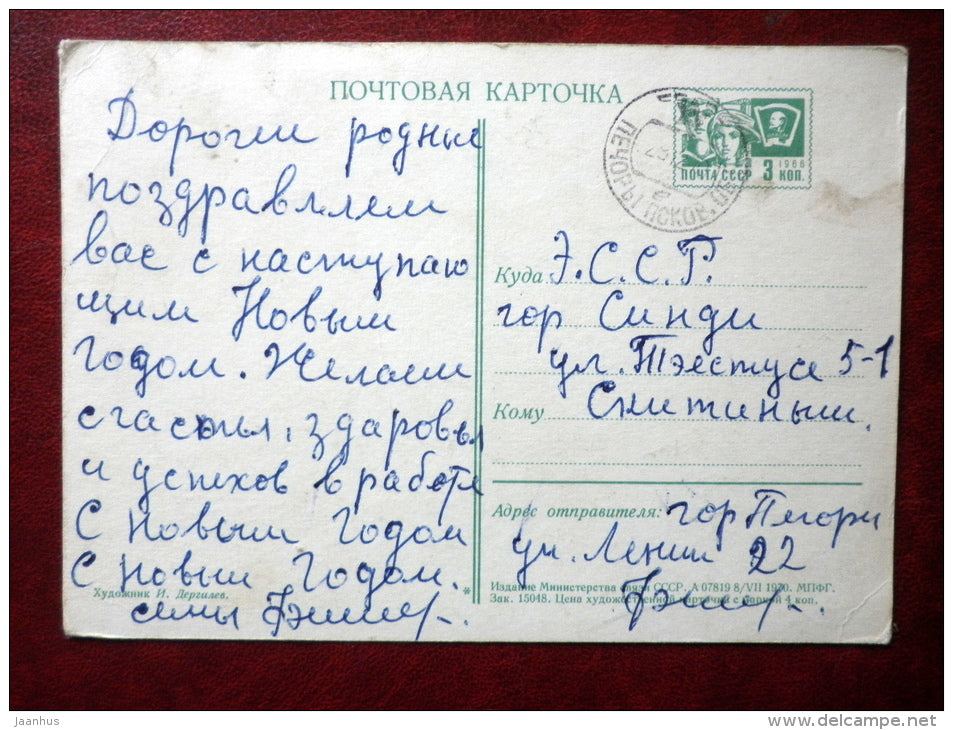 ПОЧТОВАЯ КАРТОЧКА
Дорогие родные
поздравляем
вас с наступаю
щим Новым
годом. Желаем
счастья, здаровья
и успехов в работе
С Новым годом
С Новым Годом.
семья
Художник И. Дергилев.
*
1966
ПОЧТА СССР 3 КОП.
ПЕЧОРЫ ПСКОВ. ОБ
Куда Э.С.С.Р.
гор Синди
ул. Тэестусе 5-1
Кому Смитиным
Адрес отправителя: гор Печоры
ул. Ленин 22
Издание Министерства связи СССР. А 07819 8/VII 1970. МПФГ.
Зак. 15048. Цена художественной карточки с маркой 4 коп.
jaanhus
www.delcampe.net